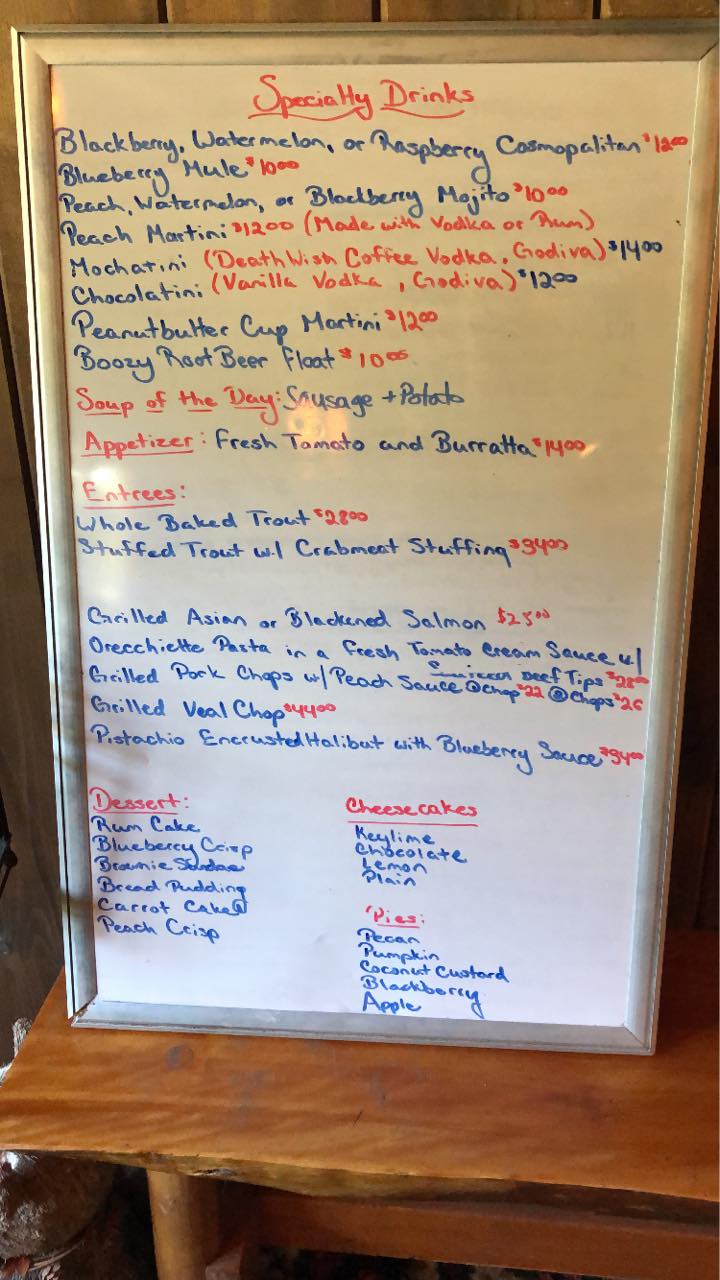 Specialty Drinks
Blackberry, Watermelon, or Raspberry Cosmopolitan $12.00
Blueberry Mule $10.00
Peach, Watermelon, or Blackberry Mojito $10.00
Peach Martini $12.00 (Made with Vodka or Rum)
Mochatini (Death Wish Coffee Vodka, Godiva) $14.00
Chocolatini (Vanilla Vodka, Godiva) $12.00
Peanutbutter Cup Martini $12.00
Boozy Root Beer Float $10.00
Soup of the Day: Sausage + Potato
Appetizer: Fresh Tomato and Burratta $14.00
Entrees:
Whole Baked Trout $28.00
Stuffed Trout w/ Crabmeat Stuffing $34.00
Grilled Asian or Blackened Salmon $25.00
Orecchiette Pasta in a Fresh Tomato Cream Sauce w/
Beef Tips $28.00
Grilled Pork Chops w/ Peach Sauce ① Chop $22 ② Chops $26
Grilled Veal Chop $44.00
Pistachio Encrusted Halibut with Blueberry Sauce $34.00
Dessert:
Rum Cake
Blueberry Crisp
Brownie Sundae
Bread Pudding
Carrot Cake
Peach Crisp
Cheesecakes
Keylime
Chocolate
Lemon
Plain
Pies:
Pecan
Pumpkin
Coconut Custard
Blackberry
Apple